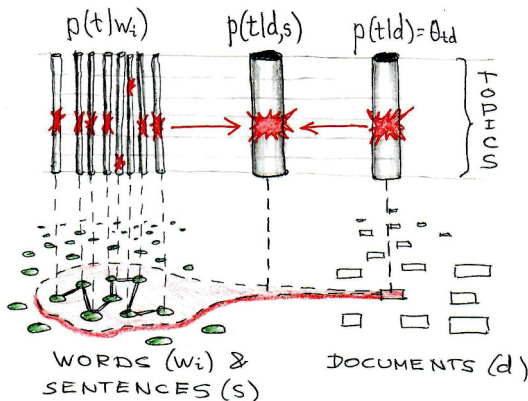 p(t|wᵢ) p(t|d,s) p(t|d)=θtd
TOPICS
WORDS (wᵢ) &
SENTENCES (s)
DOCUMENTS (d)